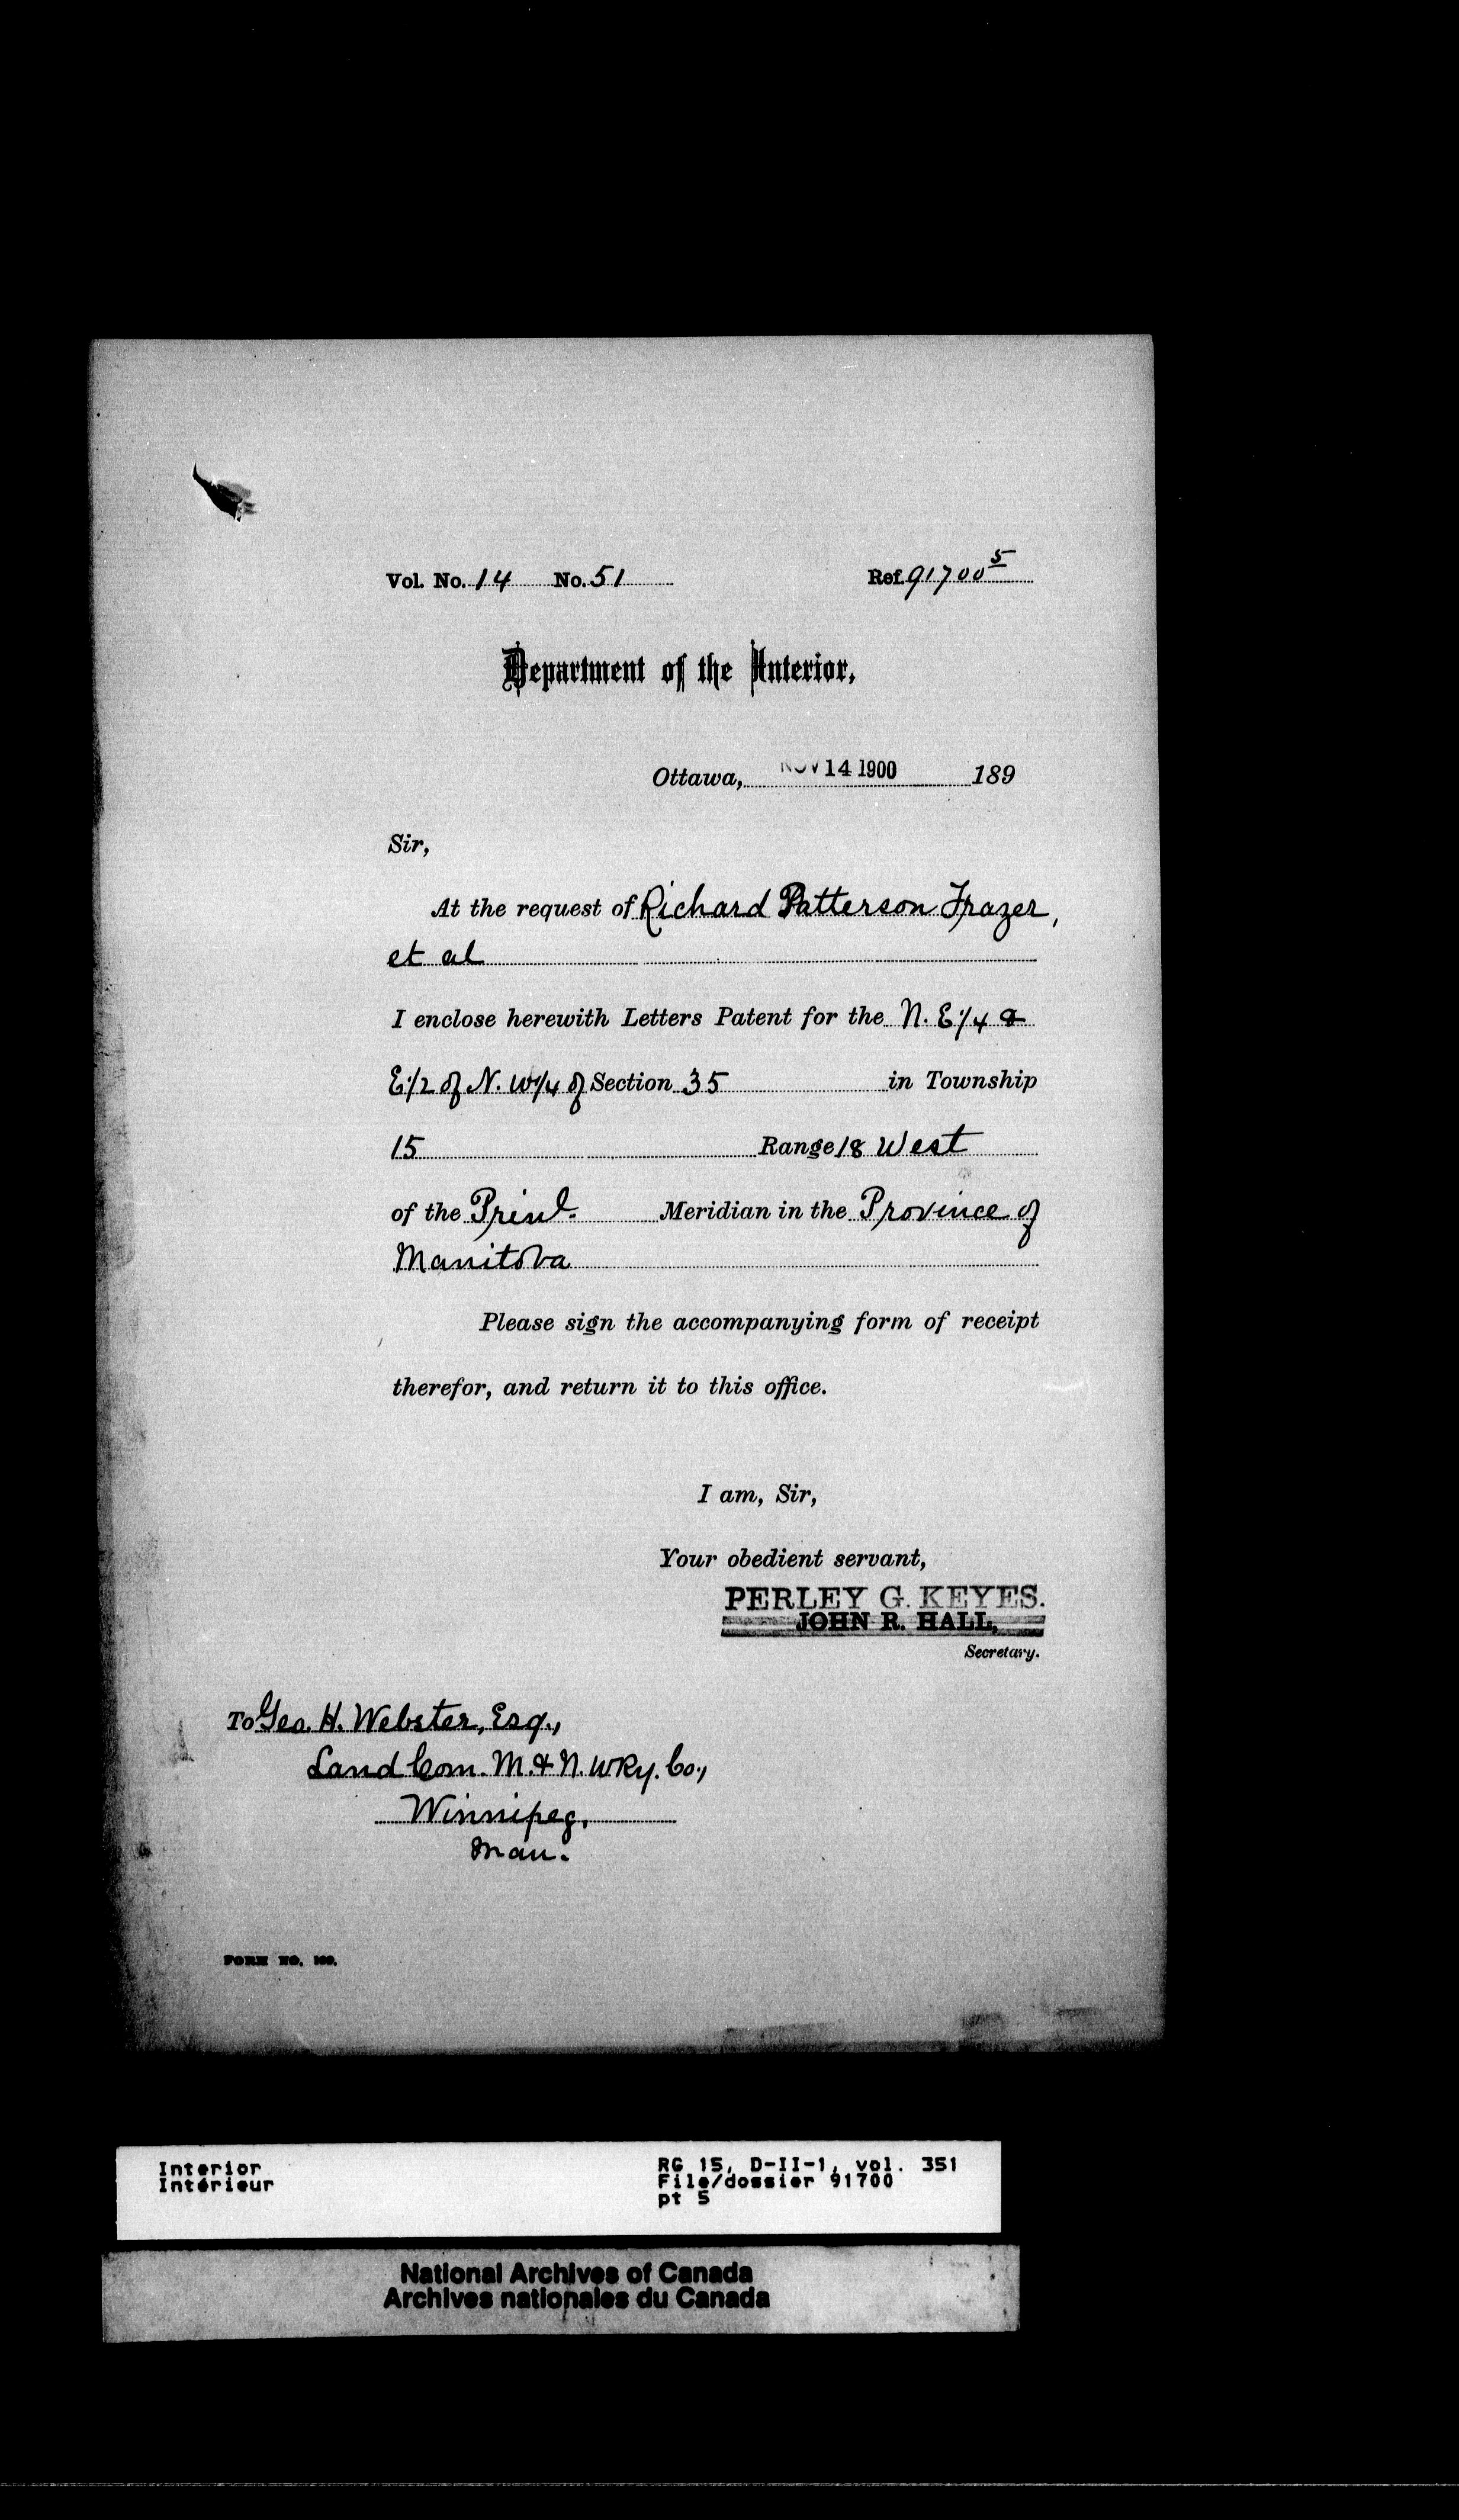 Vol. No. 14 No. 51 Ref. 91700 5
Department of the Interior,
Ottawa, NOV 14 1900 189
Sir,
At the request of Richard Patterson Frazer,
et al
I enclose herewith Letters Patent for the N. E 1/4 &
E 1/2 of N. W 1/4 of Section 35 in Township
15 Range 18 West
of the Prinl. Meridian in the Province of
Manitoba
Please sign the accompanying form of receipt
therefor, and return it to this office.
I am, Sir,
Your obedient servant,
PERLEY G. KEYES.
JOHN R. HALL,
Secretary.
To Geo. H. Webster, Esq.,
Land Com. M. & N. W Ry. Co.,
Winnipeg,
Man.
FORM NO. 109.
Interior
Intérieur
RG 15, D-II-1, vol. 351
File/dossier 91700
pt 5
National Archives of Canada
Archives nationales du Canada